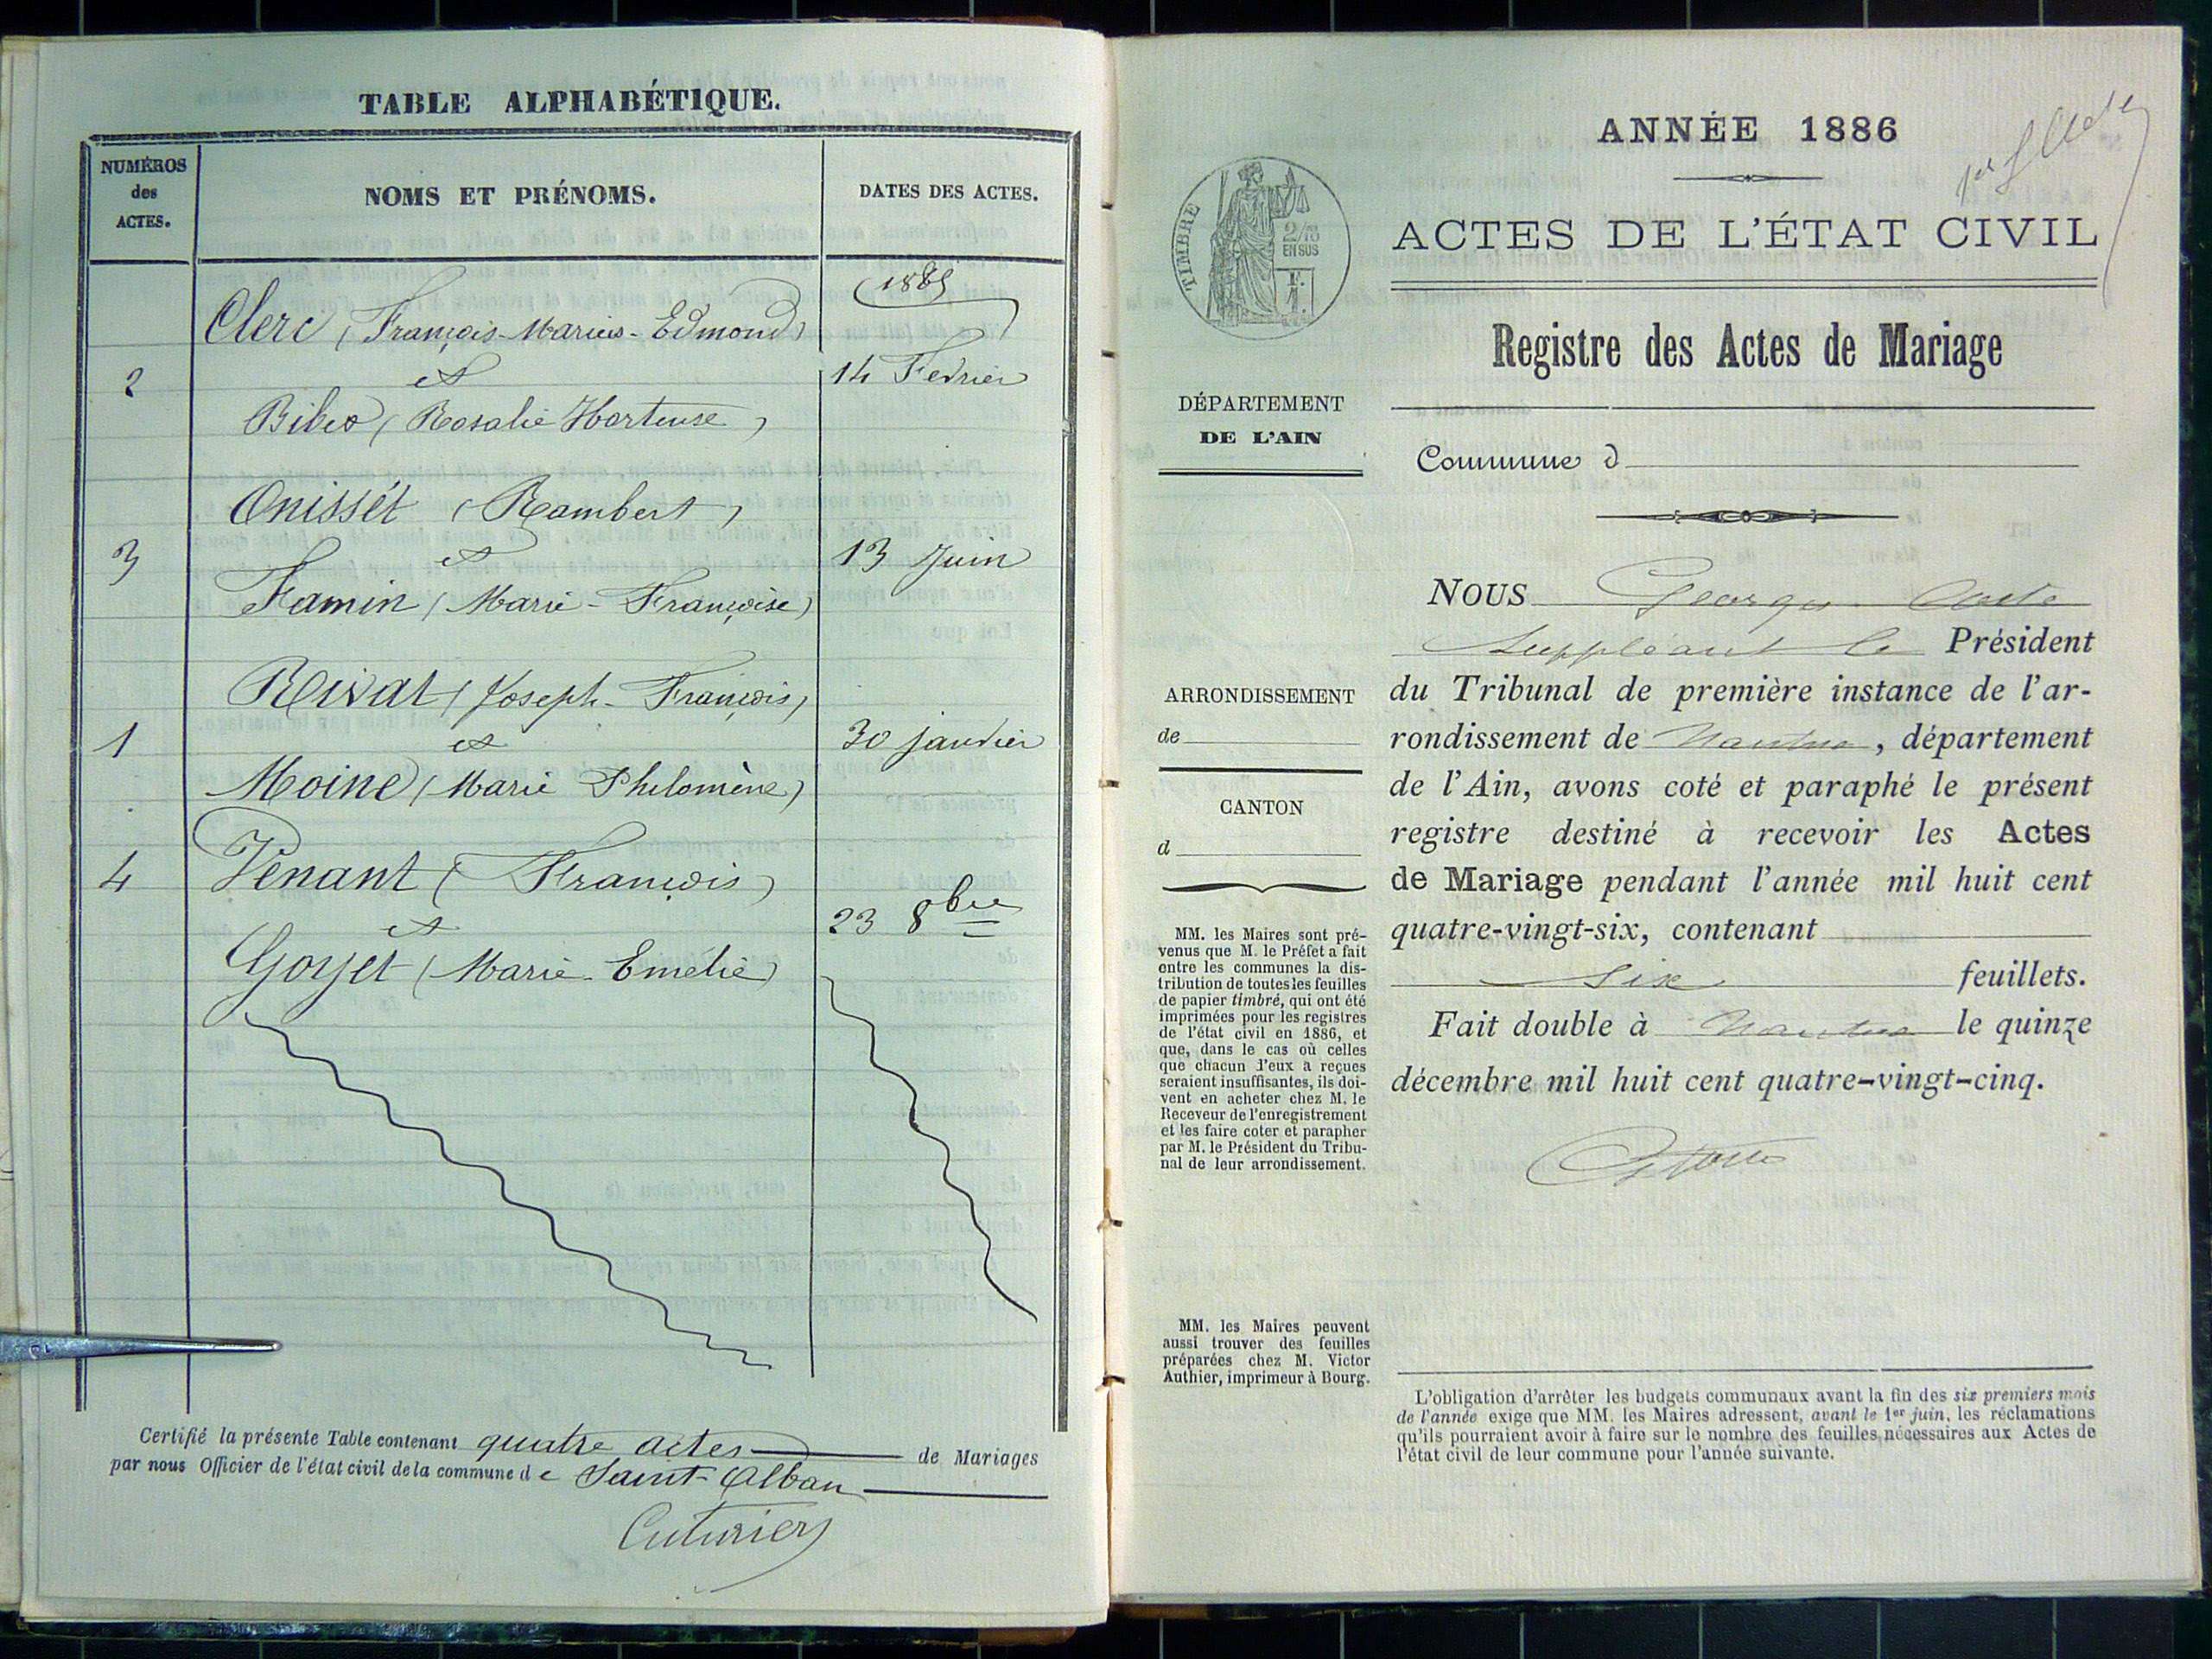 TABLE ALPHABÉTIQUE.
NUMÉROS
des
ACTES.
NOMS ET PRÉNOMS.
DATES DES ACTES.
1885
Clerc (François-Marius-Edmond)
2
et
14 Février
(Rosalie Hortense)
Onisset (Rambert)
3
et
13 Juin
Famin (Marie-Françoise)
Rivat (Joseph-François)
1
et
30 janvier
Moine (Marie Philomène)
4
Venant (François)
23 8bre
et
Goyet (Marie-Emélie)
Certifié la présente Table contenant quatre actes de Mariages
par nous Officier de l'état civil de la commune de Saint-Alban
Cuturier
ANNÉE 1886
1er
TIMBRE
2/10
EN SUS
ACTES DE L'ÉTAT CIVIL
Registre des Actes de Mariage
DÉPARTEMENT
DE L'AIN
Commune d
ARRONDISSEMENT
de
CANTON
d
MM. les Maires sont pré-
venus que M. le Préfet a fait
entre les communes la dis-
tribution de toutes les feuilles
de papier timbré, qui ont été
imprimées pour les registres
de l'état civil en 1886, et
que, dans le cas où celles
que chacun d'eux a reçues
seraient insuffisantes, ils doi-
vent en acheter chez M. le
Receveur de l'enregistrement
et les faire coter et parapher
par M. le Président du Tribu-
nal de leur arrondissement.
MM. les Maires peuvent
aussi trouver des feuilles
préparées chez M. Victor
Authier, imprimeur à Bourg.
NOUS Georges
Suppléant le Président
du Tribunal de première instance de l'ar-
rondissement de Nantua, département
de l'Ain, avons coté et paraphé le présent
registre destiné à recevoir les Actes
de Mariage pendant l'année mil huit cent
quatre-vingt-six, contenant
six feuillets.
Fait double à Nantua le quinze
décembre mil huit cent quatre-vingt-cinq.
L'obligation d'arrêter les budgets communaux avant la fin des six premiers mois
de l'année exige que MM. les Maires adressent, avant le 1er juin, les réclamations
qu'ils pourraient avoir à faire sur le nombre des feuilles nécessaires aux Actes de
l'état civil de leur commune pour l'année suivante.